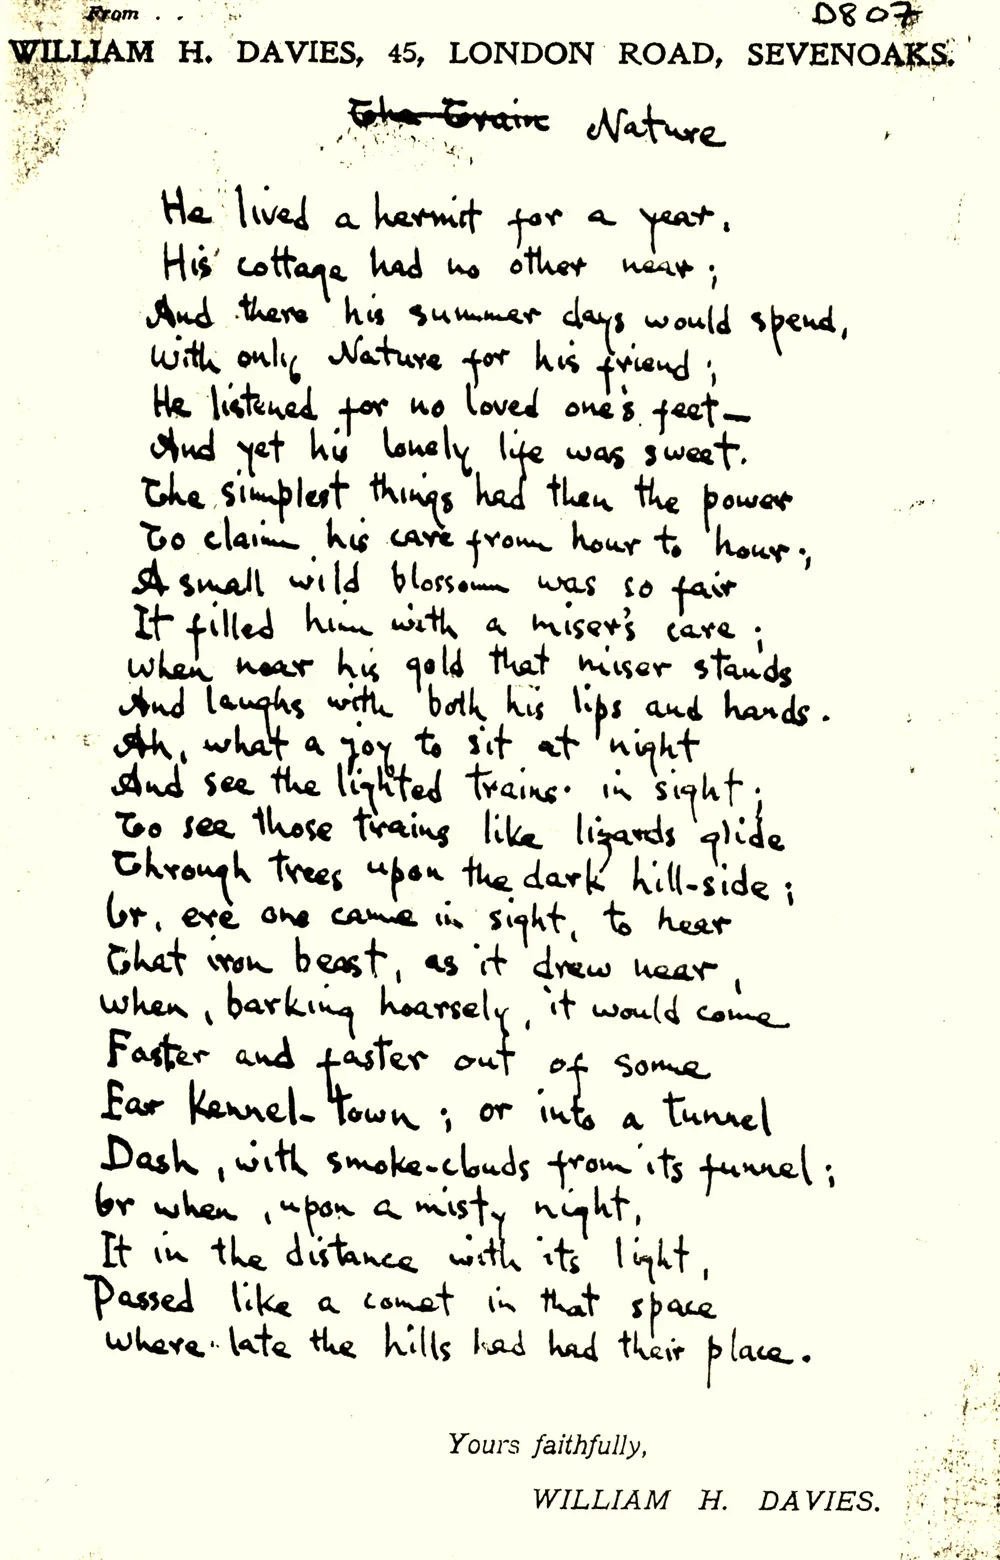 From . .
D807
WILLIAM H. DAVIES, 45, LONDON ROAD, SEVENOAKS.
The Train Nature
He lived a hermit for a year,
His cottage had no other near ;
And there his summer days would spend,
With only Nature for his friend ;
He listened for no loved one's feet—
And yet his lonely life was sweet.
The simplest things had then the power
To claim his care from hour to hour ;
A small wild blossom was so fair
It filled him with a miser's care ;
When near his gold that miser stands
And laughs with both his lips and hands.
Ah, what a joy to sit at night
And see the lighted trains in sight ;
To see those trains like lizards glide
Through trees upon the dark hill-side ;
Or, ere one came in sight, to hear
That iron beast, as it drew near,
When, barking hoarsely, it would come
Faster and faster out of some
Far kennel-town ; or into a tunnel
Dash, with smoke-clouds from its funnel ;
Or when, upon a misty night,
It in the distance with its light,
Passed like a comet in that space
Where late the hills had had their place.
Yours faithfully,
WILLIAM H. DAVIES.